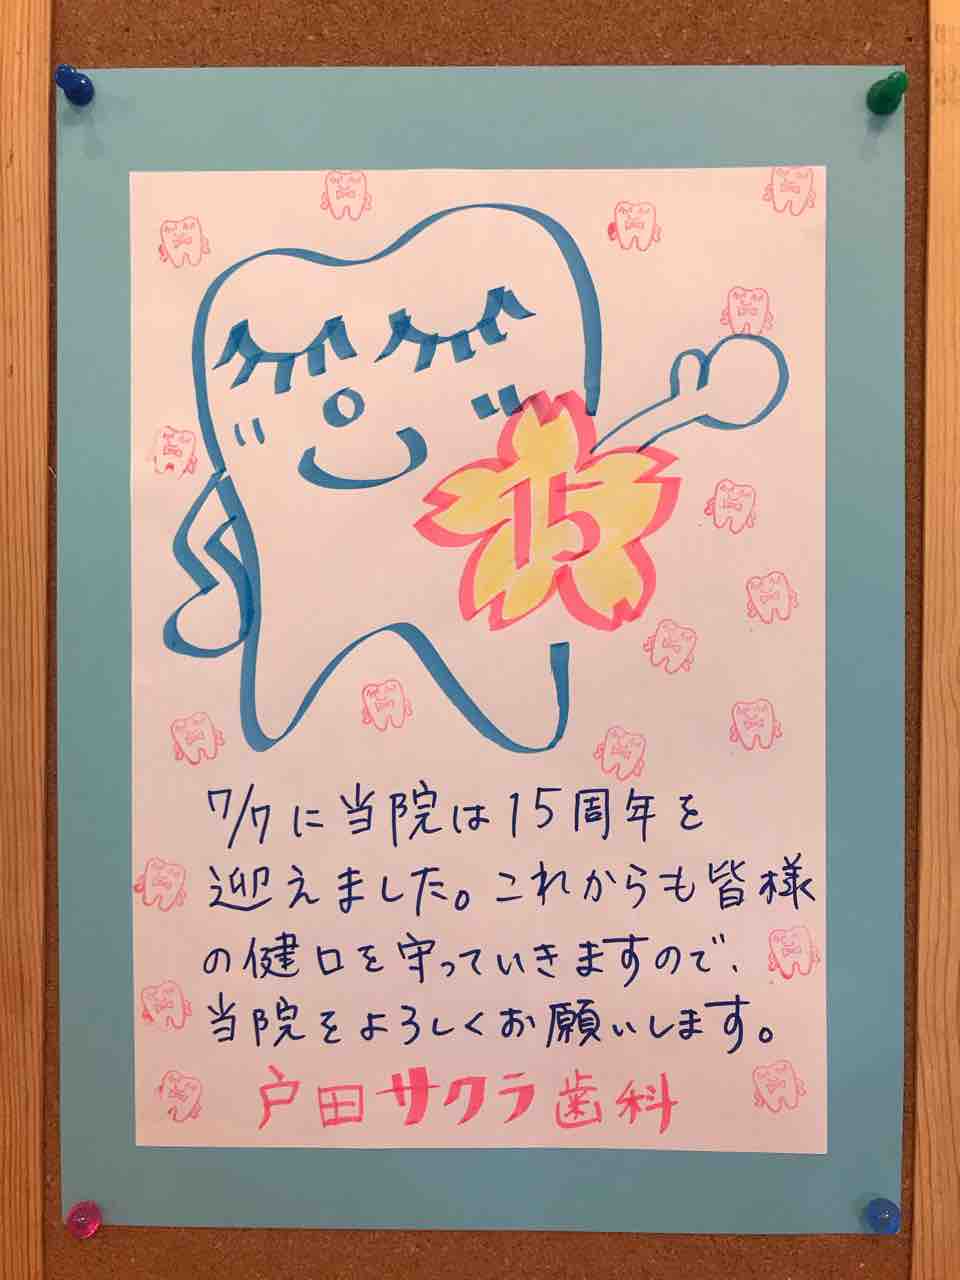 15
7/7に当院は15周年を
迎えました。これからも皆様
の健口を守っていきますので、
当院をよろしくお願いします。
戸田サクラ歯科